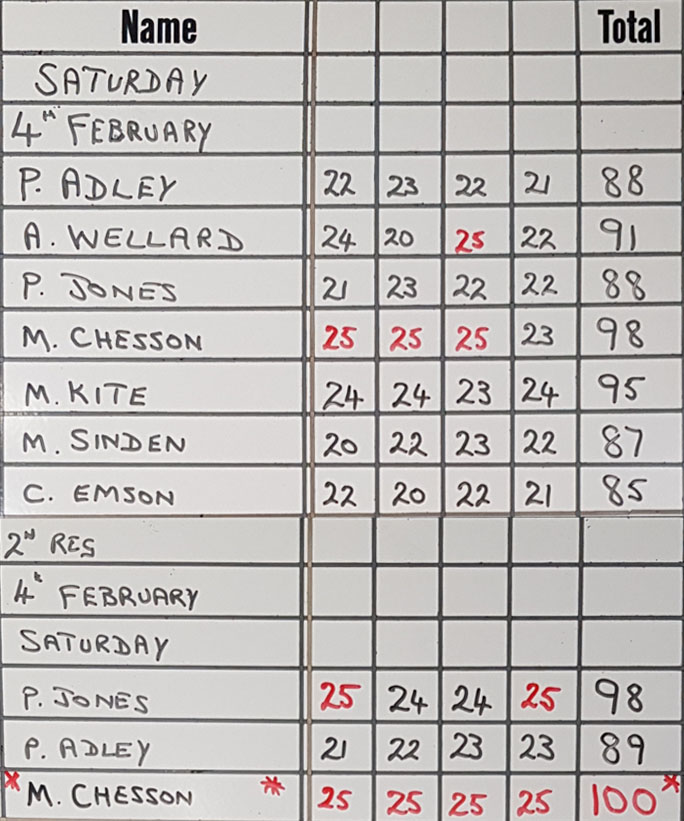 Name Total
SATURDAY
4TH FEBRUARY
P. ADLEY 22 23 22 21 88
A. WELLARD 24 20 25 22 91
P. JONES 21 23 22 22 88
M. CHESSON 25 25 25 23 98
M. KITE 24 24 23 24 95
M. SINDEN 20 22 23 22 87
C. EMSON 22 20 22 21 85
2ND RES
4th FEBRUARY
SATURDAY
P. JONES 25 24 24 25 98
P. ADLEY 21 22 23 23 89
* M. CHESSON * 25 25 25 25 100 *